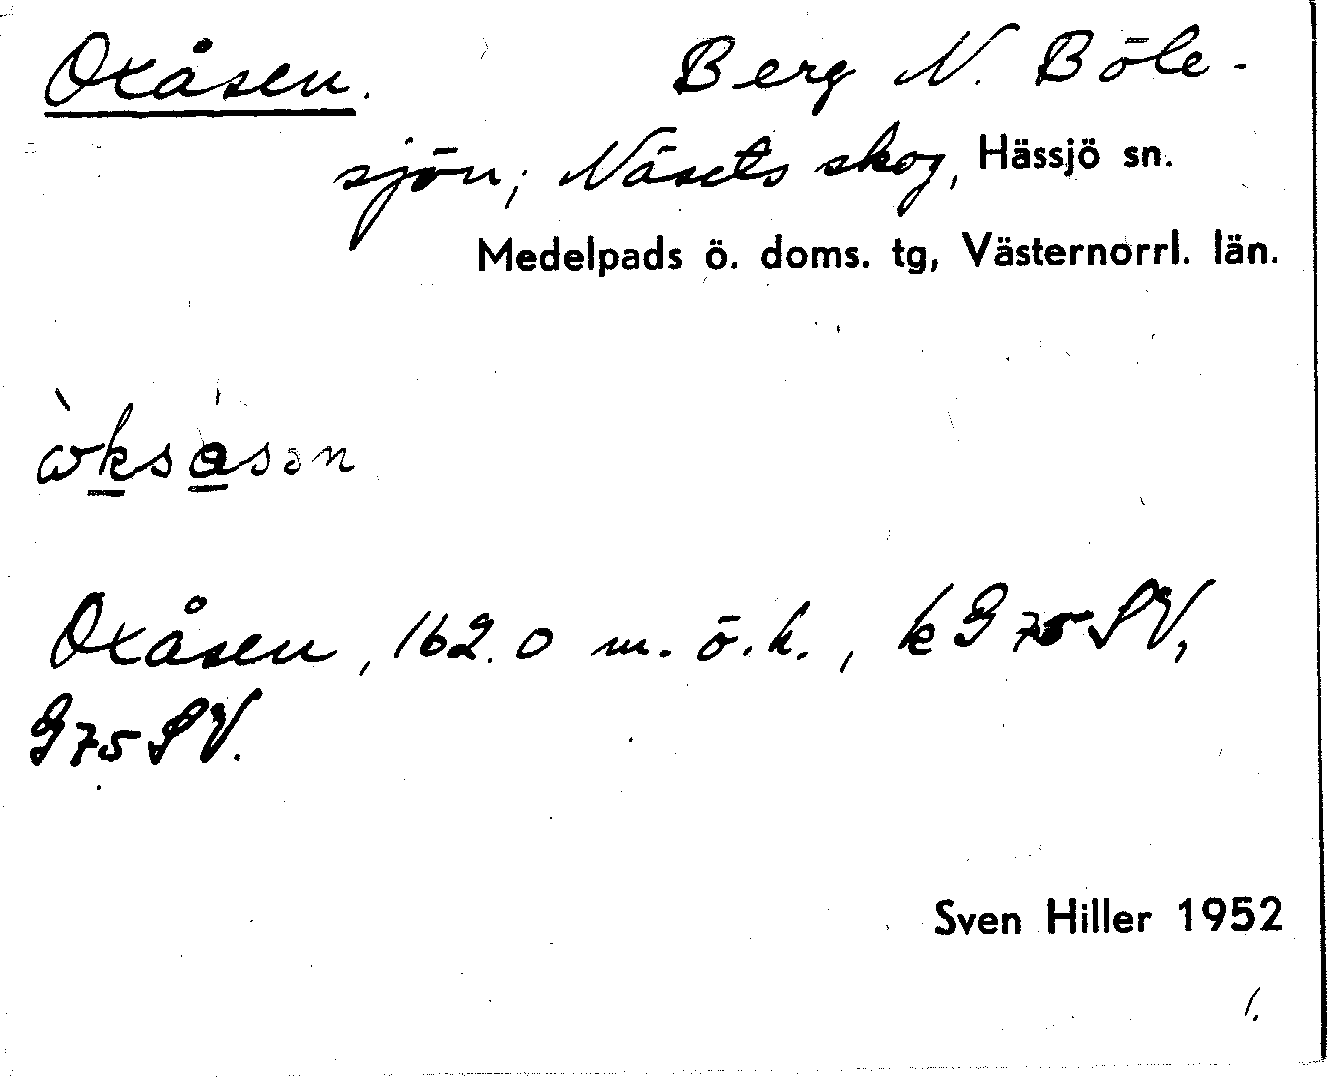 Oxåsen. Berg N. Böle-
sjön; Näsets skog, Hässjö sn.
Medelpads ö. doms. tg, Västernorrl. län.
Oxåsen, 162.0 m. ö. h., k G 75 SV,
G 75 SV.
Sven Hiller 1952
1.